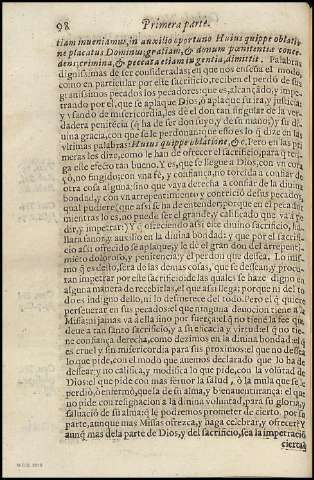 98 Primera parte.
tiam inueniamus, in auxilio oportuno Huius quippe oblatio
ne placatus Dominus; gratiam, & donum pœnitentiæ conce
dens; crimina, & peccata etiam ingentia, dimittit. Palabras
dignissimas de ser consideradas; en que nos enseña el modo,
como en particular por este sacrificio, reciben el perdō de sus
grauissimos pecados los pecadores: que es, alcançado, y impe
trando por el, que se aplaque Dios, o aplaque su ira, y justicia:
y vsando de misericordia, les dè el don tan singular de la ver
dadera penitēcia (q̄ ha de ser don suyo, y de su mano; y su di-
uina gracia, con que se le perdonan: que esso es lo q̄ dize en las
vltimas palabras: Huius quippe oblatione, &c. Pero en las pri
meras les dize, como le han de ofrecer el sacrificio, para q̄ ten-
ga este efecto tan bueno. Y es, que se llegue a Dios, con vn cora
çō, no fingido; con vna fè, y confiança, no torcida a confiar de
otra cosa alguna, sino que vaya derecha a confiar de la diuina
bondad, y con vn arrepentimiento y contricīō de sus pecados,
qual pudiere;
mientras lo es, no puede ser el grande, y calificado que va a pe
dir, y impetrar:) Y q̄ ofreciendo assi este diuino sacrificio, ha-
llara fauor, y auxilio en la diuina bondad: y que por el sacrifi-
cio assi ofrecido se aplaque, y le dè el gran don del arrepenti-
miēto doloroso, y penitencia; y el perdon que dessea. Lo mis-
mo q̄ es desto, sera de las demas cosas, que se dessean, y procu-
ran impetrar por este sacrificio: de las quales se haze digno en
alguna manera de recebirlas, el que assi llega; porque ni del to
do es indigno dello, ni lo desmerece del todo. Pero el q̄ quiere
perseuerar en sus pecados: el que ninguna deuocion tiene a la
Missa; ni jamas va a ella sino por fuerça: el q̄ no tiene la fee que
deue a tan santo sacrificio, y a su eficacia y virtud: el q̄ no tie-
ne confiança derecha, como dezimos en la diuina bondad: el q̄
es cruel y sin misericordia para sus proximos: el que no dessea
lo que pide, con el modo que auemos declarado que lo ha de
dessear; y no califica, y modifica lo que pide, con la volūtad de
Dios: el que pide con mas feruor la salud, ò la mula que se le
perdio, ò enfermò, que la de su alma, y bienauenturança: el que
no pide con resignacion a la diuina voluntad, para su gloria, y
saluaciō de su alma: q̄ le podremos prometer de cierto por su
parte, aunque mas Missas ofrezca, y haga celebrar, y ofrecer? Y
aunq̄ mas de la parte de Dios, y del sacrificio, sea la impetraciō
cierta;